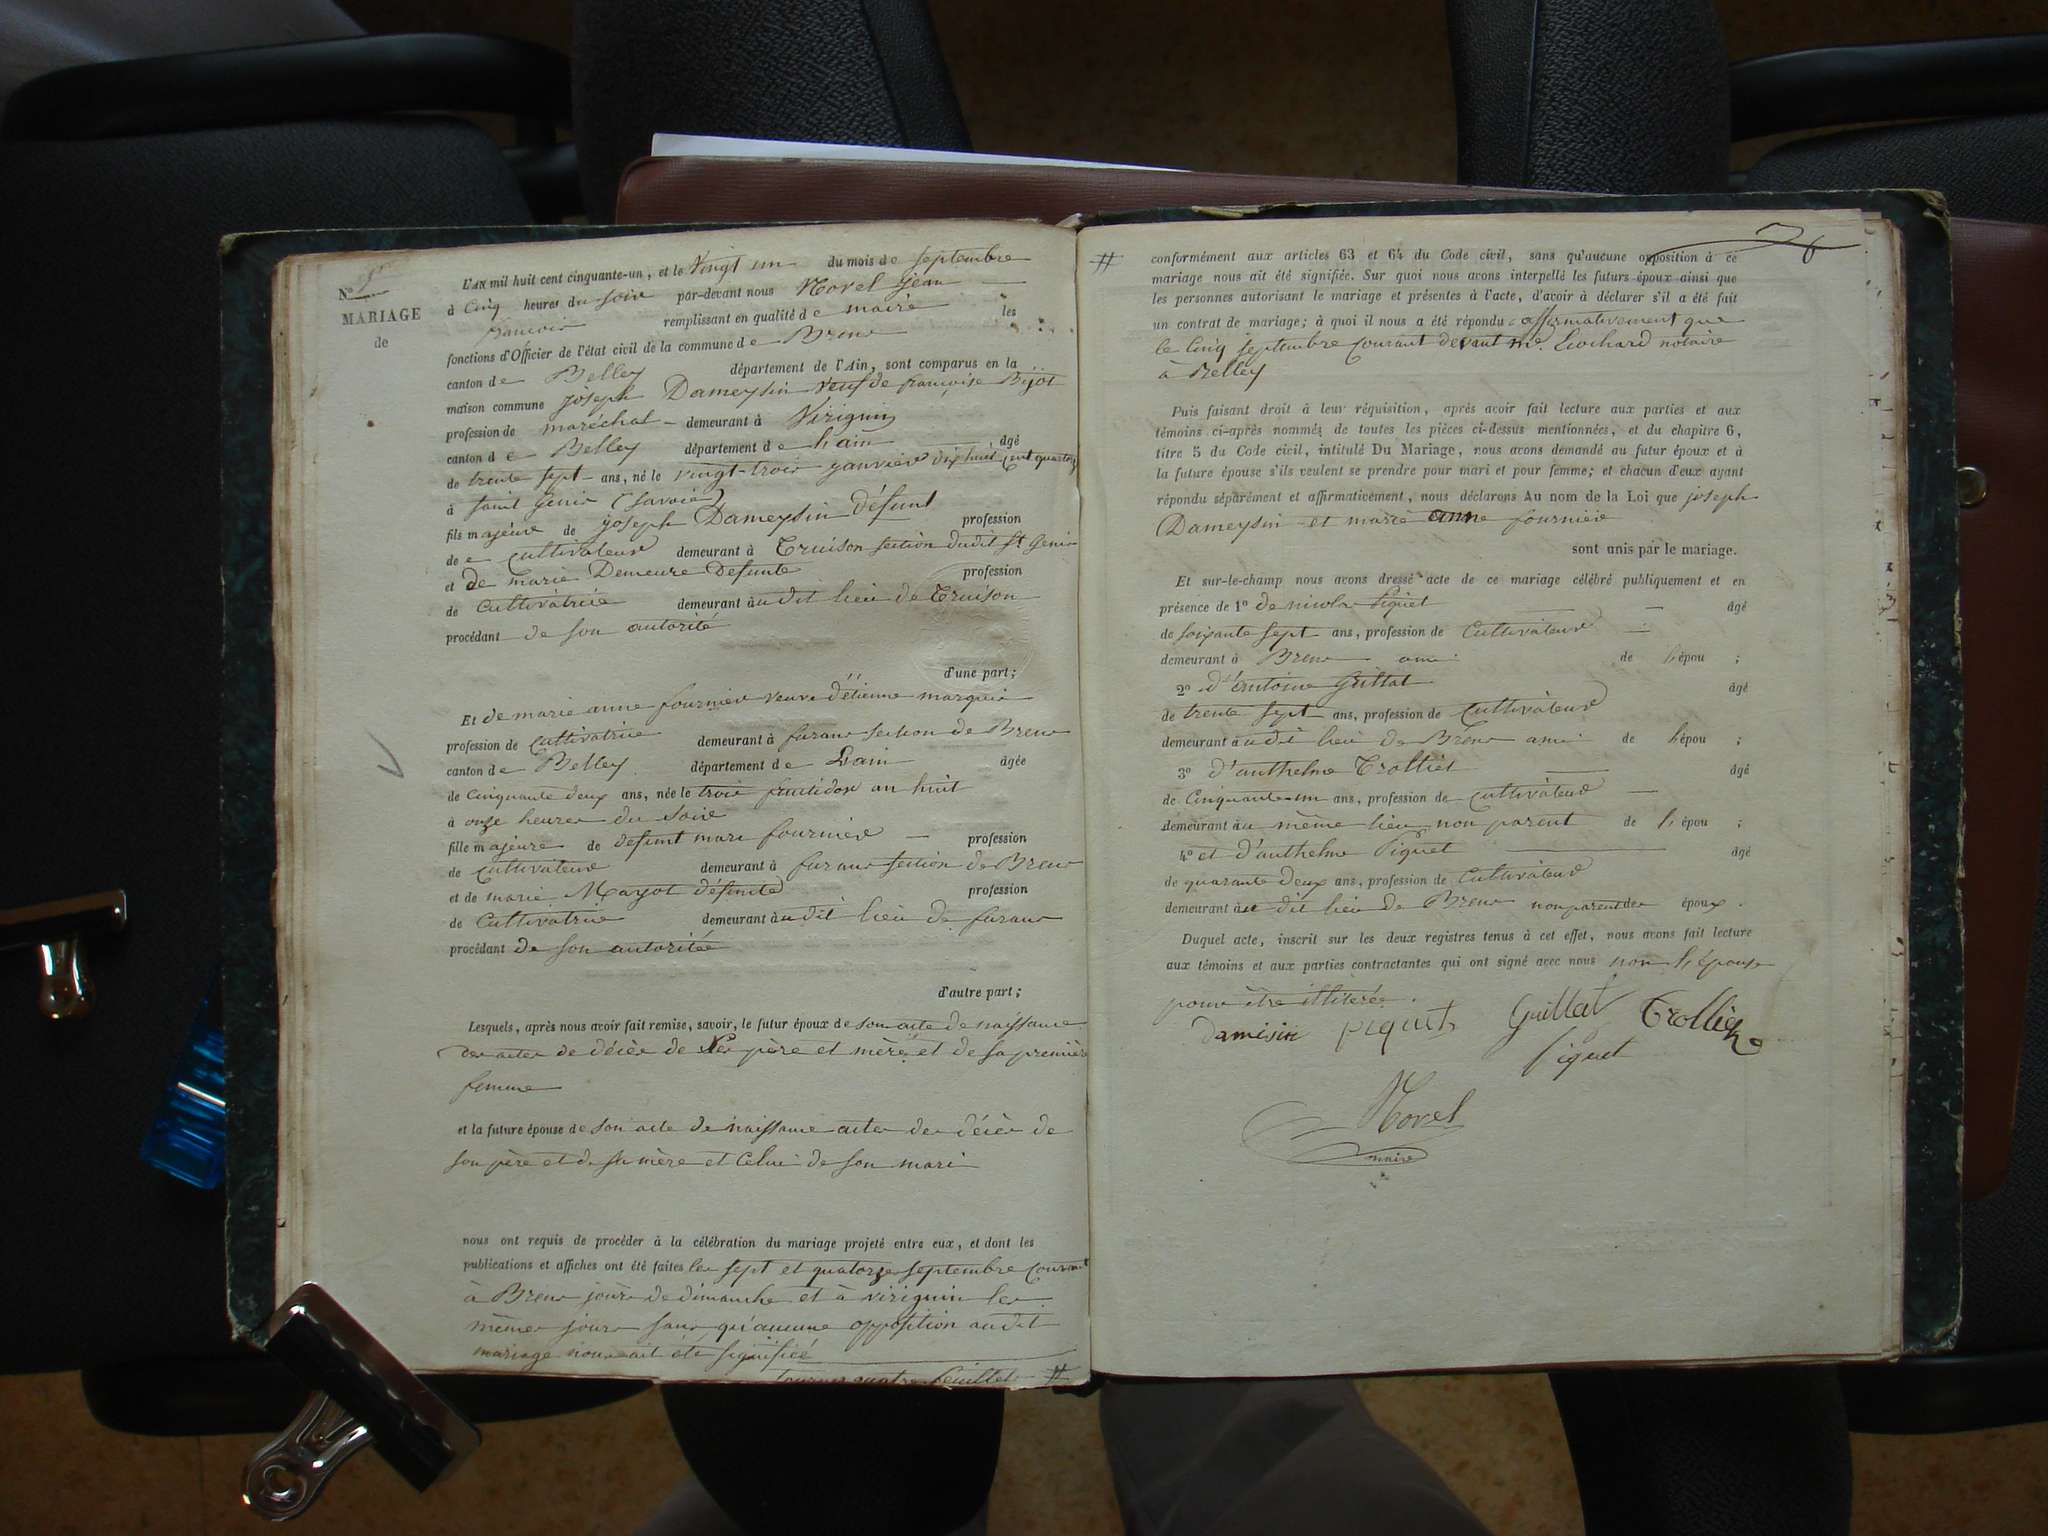 MARIAGE
de
L'AN mil huit cent cinquante-un, et le vingt un du mois de septembre
à Cinq heures du soir par-devant nous Morel jean
françois remplissant en qualité de maire les
fonctions d'Officier de l'état civil de la commune de Brens
canton de Belley département de l'Ain, sont comparus en la
maison commune joseph Dameysin veuf de françoise Bijot
profession de maréchal demeurant à Virignin
canton de Belley département de Lain âgé
de trente sept ans, né le vingt-trois janvier dix huit cent quatorze
à saint Genis (Savoie)
fils majeur de joseph Dameysin défunt profession
de cultivateur demeurant à Truison section dudit St Genis
et de marie Demeure Defunte profession
de Cultivatrice demeurant audit lieu de Truison
procédant de son autorité
d'une part;
Et de marie anne fournier veuve d'étienne marquis
profession de cultivatrice demeurant à furans section de Brens
canton de Belley département de Lain âgée
de Cinquante deux ans, née le trois fructidor an huit
à onze heures du soir
fille majeure de defunt marc fournier profession
de cultivateur demeurant à furans section de Brens
et de marie Mayot défunte profession
de Cultivatrice demeurant audit lieu de furans
procédant de son autoritée
d'autre part;
Lesquels, après nous avoir fait remise, savoir, le futur époux de son acte de naissance
des actes de décès de Ses père et mère et de sa première
femme
et la future épouse de son acte de naissance actes des décès de
son père et de sa mère et Celui de son mari
nous ont requis de procéder à la célébration du mariage projeté entre eux, et dont les
publications et affiches ont été faites les sept et quatorze septembre courant
à Brens jours de dimanche et à virignin les
mêmes jours sans qu'aucune opposition audit
mariage nous ait été signifié
feuillet #
# conformément aux articles 63 et 64 du Code civil, sans qu'aucune opposition à ce
mariage nous ait été signifiée. Sur quoi nous avons interpellé les futurs époux ainsi que
les personnes autorisant le mariage et présentes à l'acte, d'avoir à déclarer s'il a été fait
un contrat de mariage; à quoi il nous a été répondu affirmativement que
le Cinq septembre courant devant me. notaire
à Belley
Puis faisant droit à leur réquisition, après avoir fait lecture aux parties et aux
témoins ci-après nommés de toutes les pièces ci-dessus mentionnées, et du chapitre 6,
titre 5 du Code civil, intitulé Du Mariage, nous avons demandé au futur époux et à
la future épouse s'ils veulent se prendre pour mari et pour femme; et chacun d'eux ayant
répondu séparément et affirmativement, nous déclarons Au nom de la Loi que joseph
Dameysin et marie anne fournier
sont unis par le mariage.
Et sur-le-champ nous avons dressé acte de ce mariage célébré publiquement et en
présence de 1º de nicolas Piquet âgé
de soixante sept ans, profession de Cultivateur
demeurant à Brens ami de lépou ;
2º d'antoine Guillat âgé
de trente sept ans, profession de Cultivateur
demeurant audit lieu de Brens ami de lépou ;
3º d'anthelme Trolliet âgé
de Cinquante un ans, profession de cultivateur
demeurant au même lieu non parent de lépou ;
4º et d'anthelme Piquet âgé
de quarante deux ans, profession de Cultivateur
demeurant au dit lieu de Brens non parent des époux.
Duquel acte, inscrit sur les deux registres tenus à cet effet, nous avons fait lecture
aux témoins et aux parties contractantes qui ont signé avec nous non lépouse
pour être illiterée.
Damisin piquet Guillat Trollier
Piquet
Morel
maire